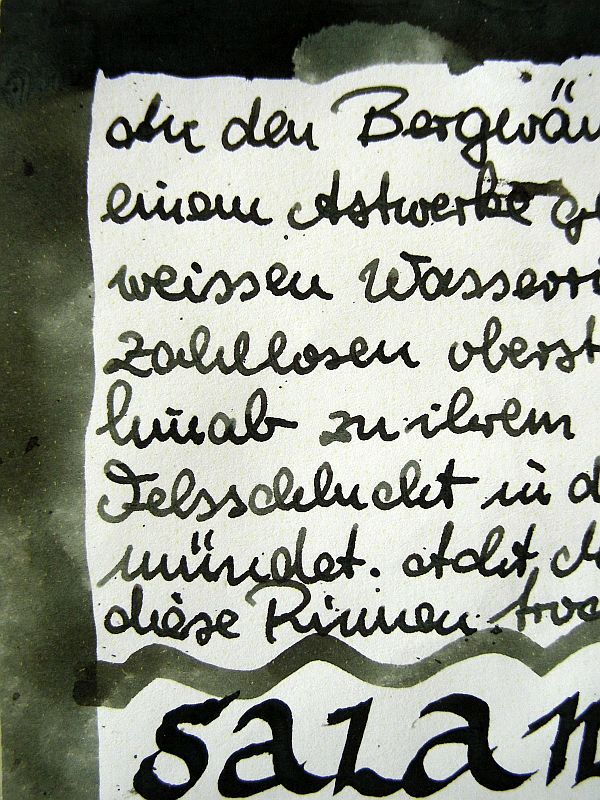 An den Bergwän
einem Astwerke gl
weissen Wasserri
zahllosen oberst
hinab zu ihrem
Felsschlucht in d
mündet. Acht M
diese Rinnen troc
SALAM